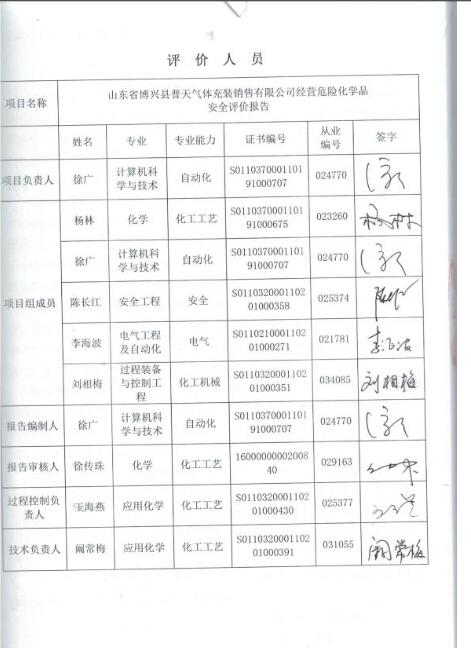 评价人员
项目名称
山东省博兴县普天气体充装销售有限公司经营危险化学品
安全评价报告
姓名 专业 专业能力 证书编号 从业
编号 签字
项目负责人 徐广 计算机科
学与技术 自动化 S0110370001101
91000707 024770
项目组成员
杨林 化学 化工工艺 S0110370001101
91000675 023260 杨林
徐广 计算机科
学与技术 自动化 S0110370001101
91000707 024770
陈长江 安全工程 安全 S0110320001102
01000358 025374
李海波 电气工程
及自动化 电气 S0110210001102
01000271 021781 李海波
刘相梅 过程装备
与控制工
程 化工机械 S0110320001102
01000351 034085 刘相梅
报告编制人 徐广 计算机科
学与技术 自动化 S0110370001101
91000707 024770
报告审核人 徐传珠 化学 化工工艺 16000000002008
40 029163
过程控制负
责人 王海燕 应用化学 化工工艺 S0110320001102
01000430 025377
技术负责人 阚常梅 应用化学 化工工艺 S0110320001102
01000391 031055 阚常梅